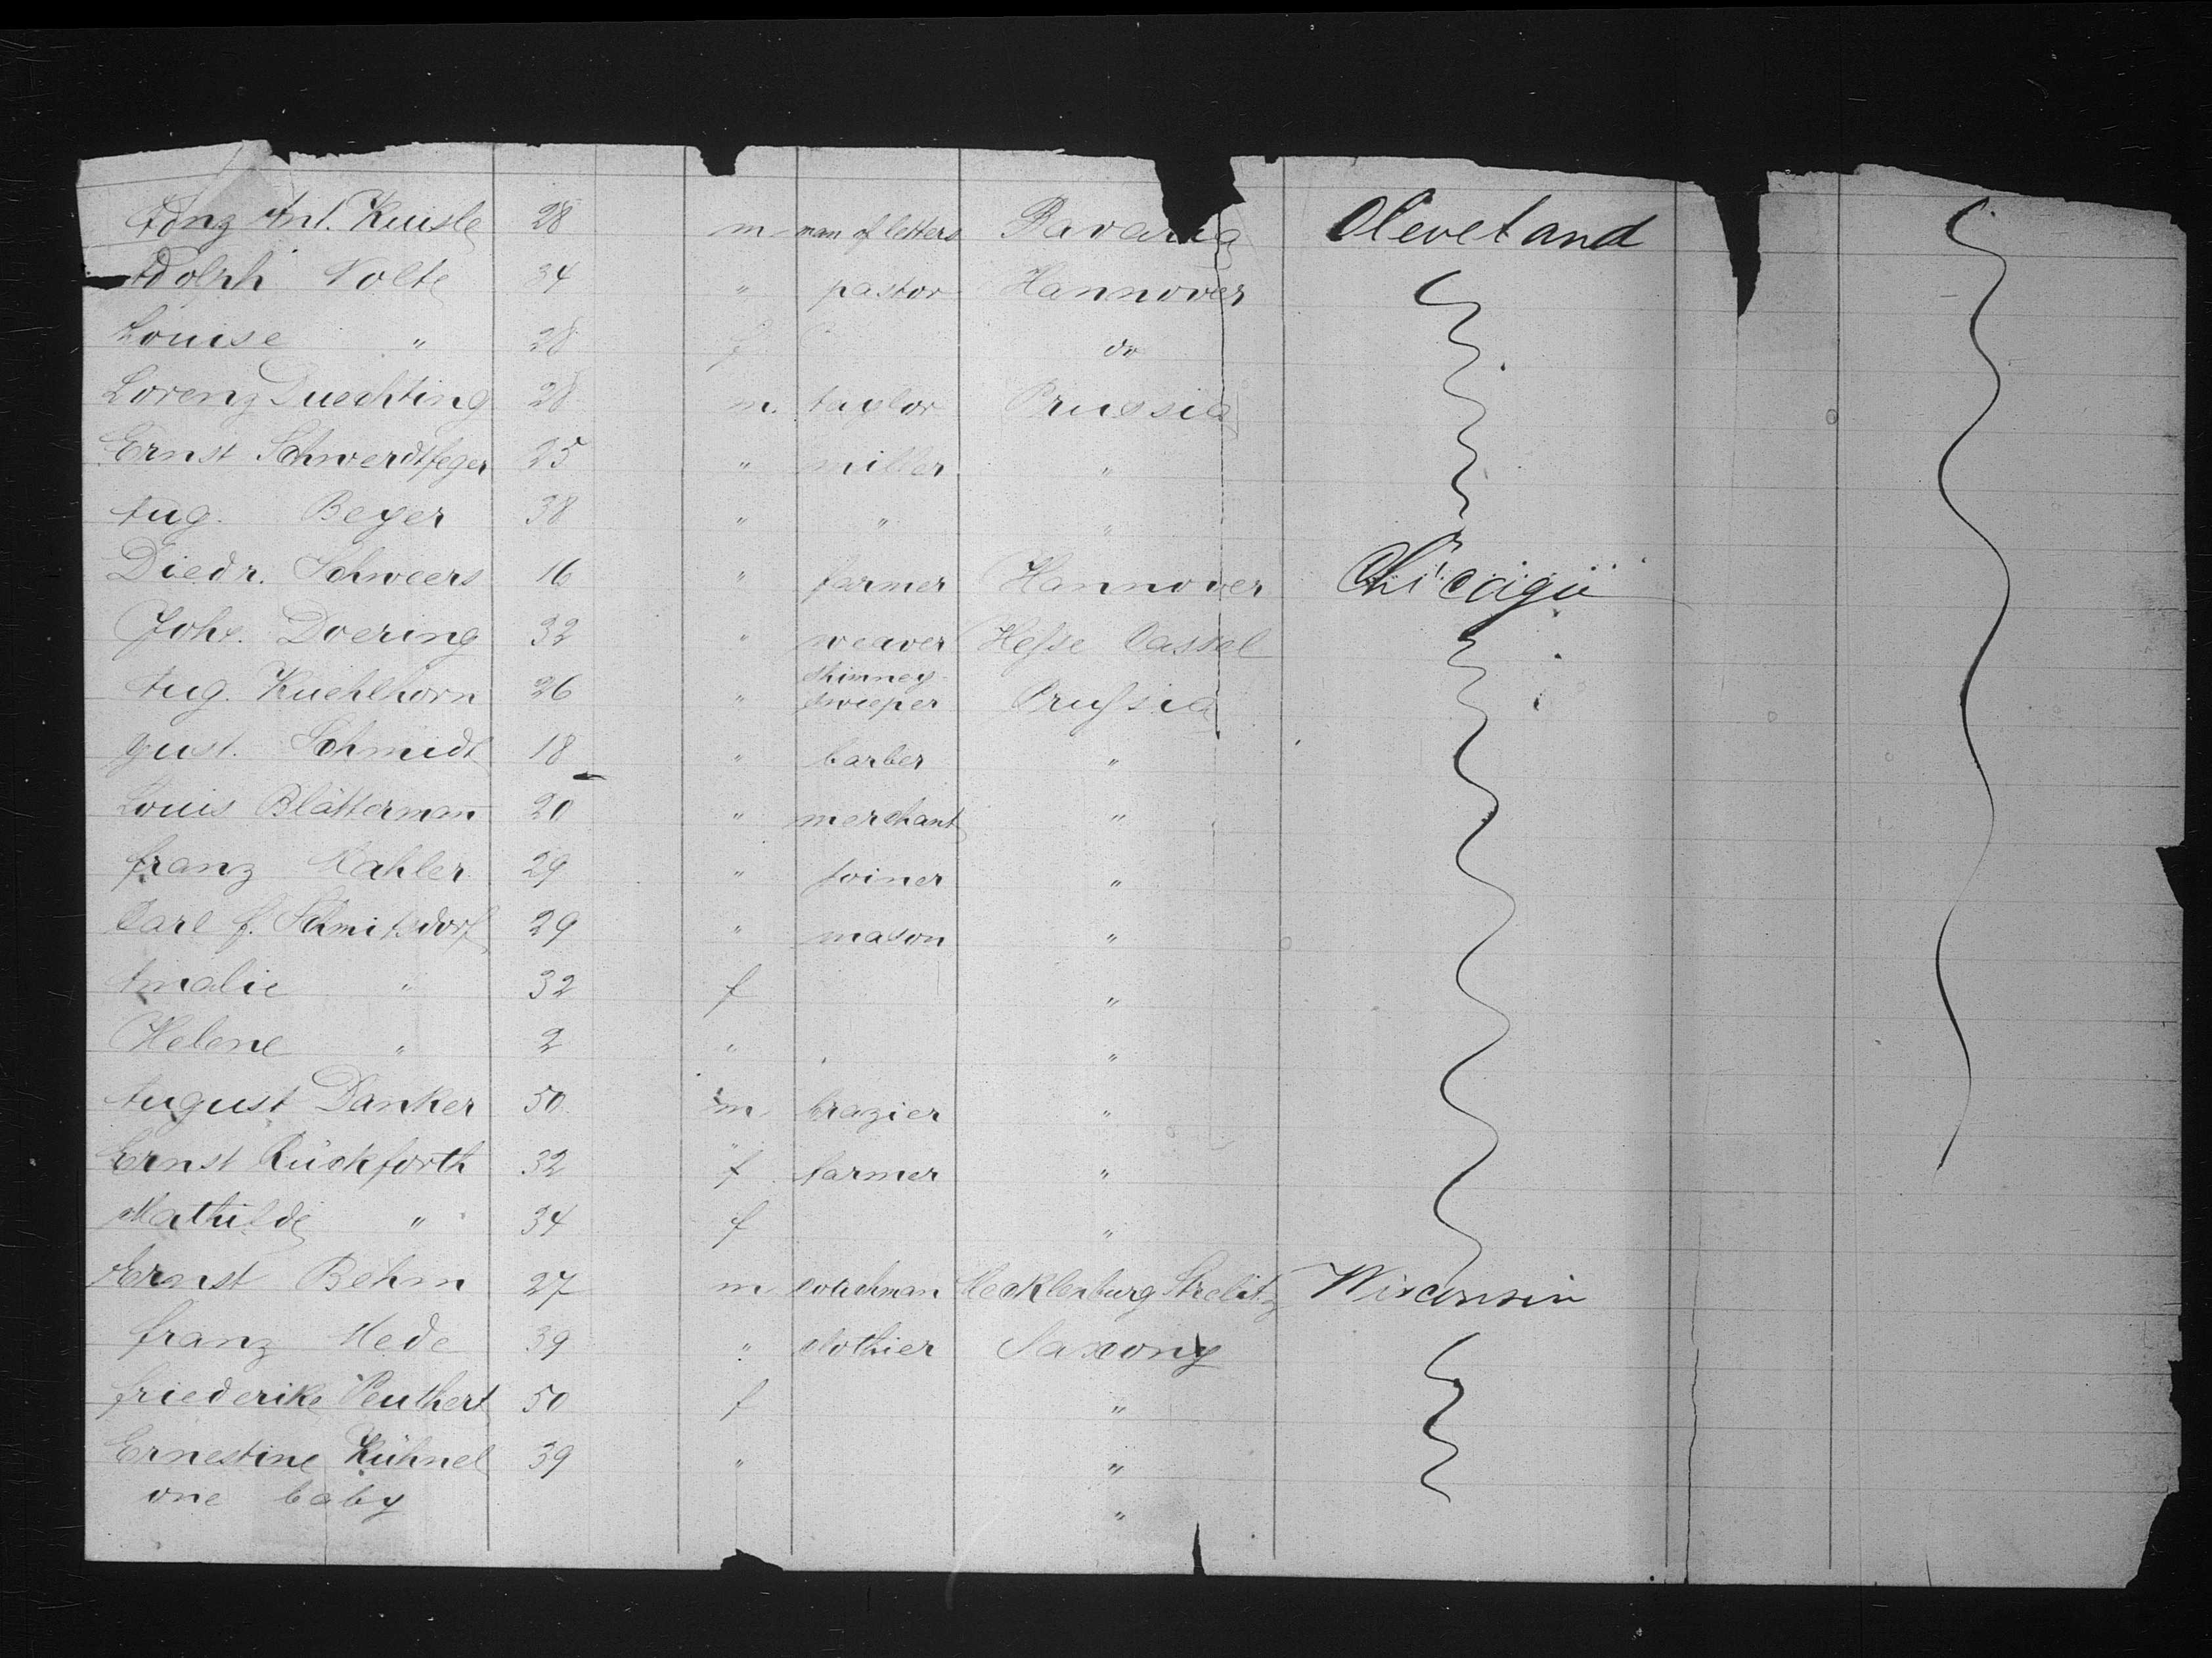 Ant. Kuisle 28 m man of letters Bavaria Cleveland
Adolph Nolte 34 " pastor Hannover
Louise " 28 f do
Lorenz Duechting 28 m. taylor Prussia
Ernst Schwerdtfeger 25 " miller "
Aug. Beyer 38 " " "
Diedr. Schweers 16 " farmer Hannover Chicago
Johs. Doering 32 " weaver Hesse Cassel
Aug. Kuehlhorn 26 " chimney-
sweeper Prussia
Gust. Schmidt 18 " barber "
Louis Blätterman 20 " merchant "
Franz Kahler 29 " joiner "
Carl F. Schmitsdorf 29 " mason "
Amalie " 32 f "
Helene " 2 " "
August Danker 50 m brazier "
Ernst Rückforth 32 " f farmer "
Mathilde " 34 f "
Ernst Behm 27 m coachman Mecklenburg Strelitz Wisconsin
Franz Hede 39 " clothier Saxony
Friederike Peuthert 50 f "
Ernestine Kühnel 39 " "
one baby "